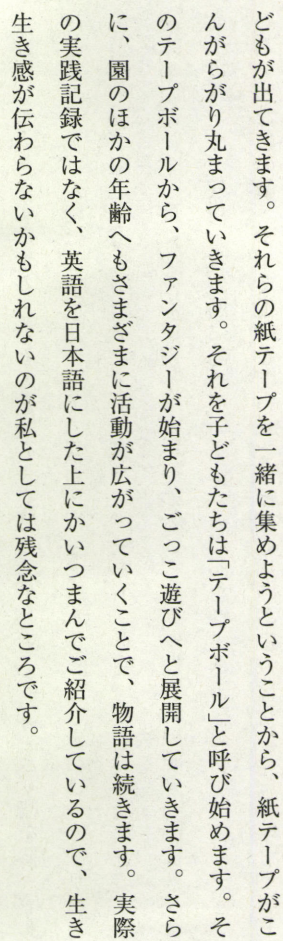 どもが出てきます。それらの紙テープを一緒に集めようということから、紙テープがこ
んがらがり丸まっていきます。それを子どもたちは「テープボール」と呼び始めます。そ
のテープボールから、ファンタジーが始まり、ごっこ遊びへと展開していきます。さら
に、園のほかの年齢へもさまざまに活動が広がっていくことで、物語は続きます。実際
の実践記録ではなく、英語を日本語にした上にかいつまんでご紹介しているので、生き
生き感が伝わらないかもしれないのが私としては残念なところです。